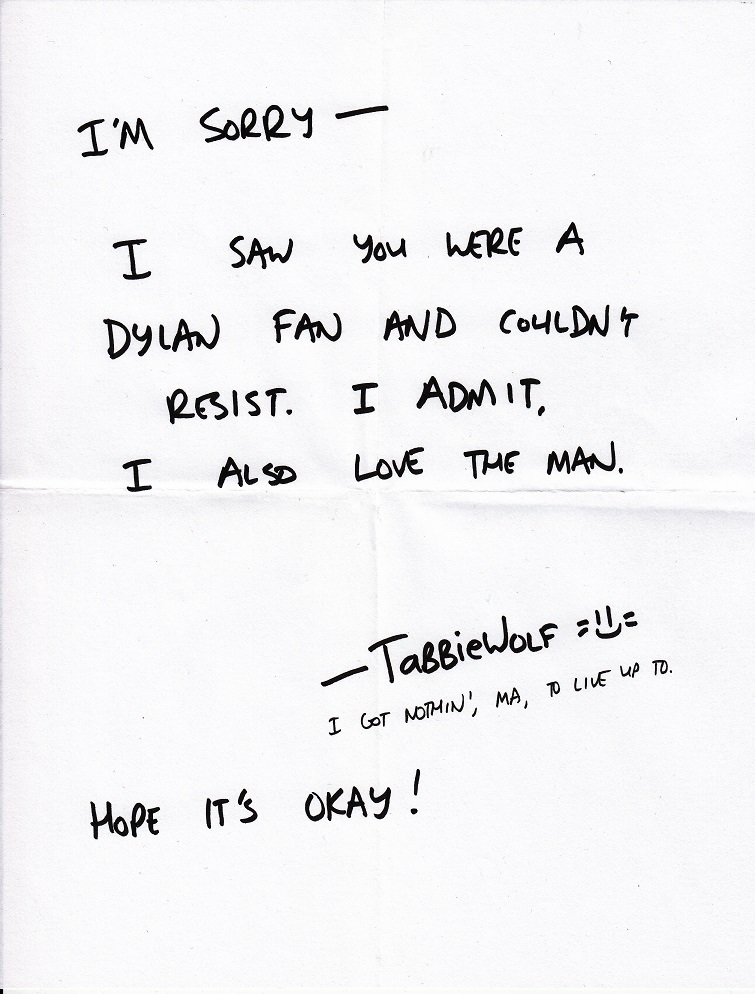 I'M SORRY —
I SAW YOU WERE A
DYLAN FAN AND COULDN'T
RESIST. I ADMIT,
I ALSO LOVE THE MAN.
— TABBIEWOLF =!!=
I GOT NOTHIN', MA, TO LIVE UP TO.
HOPE IT'S OKAY!